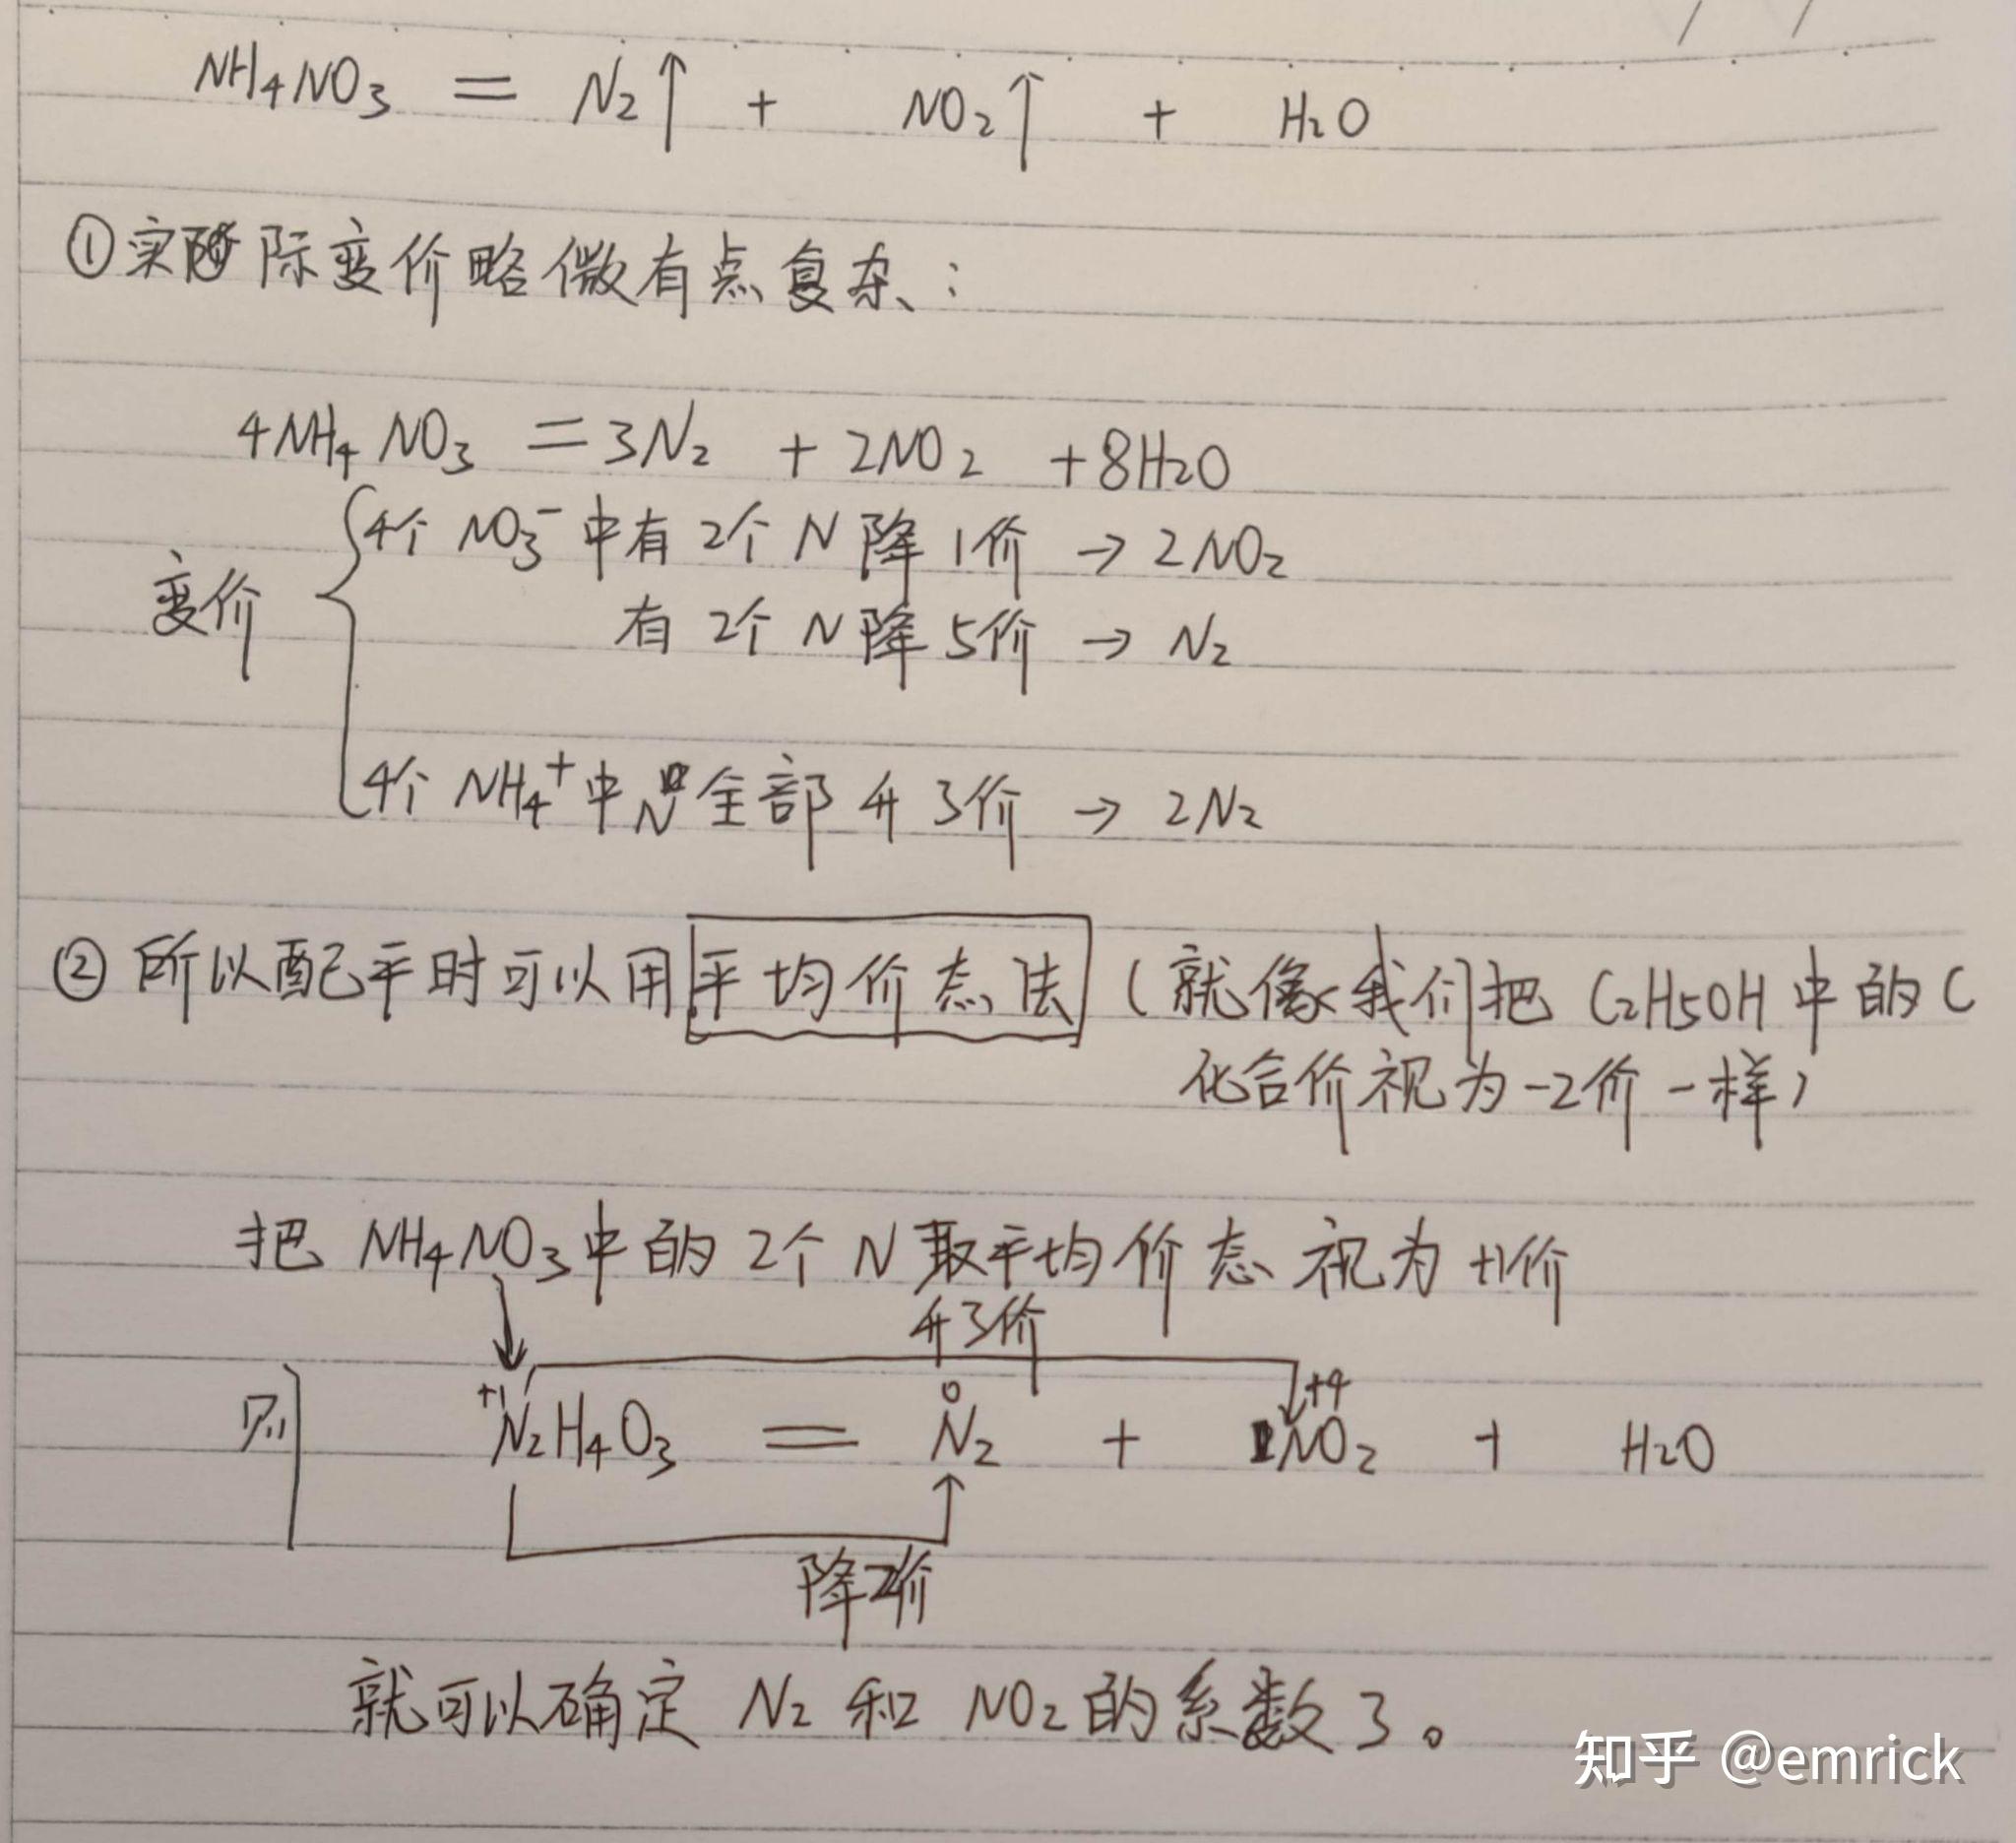 NH₄NO₃ = N₂↑ + NO₂↑ + H₂O
①实际变价略微有点复杂：
4NH₄NO₃ = 3N₂ + 2NO₂ + 8H₂O
4个 NO₃⁻中有 2个 N 降 1价 → 2NO₂
变价
有 2个 N 降 5价 → N₂
4个 NH₄⁺中N全部升3价 → 2N₂
②所以配平时可以用平均价态法（就像我们把 C₂H₅OH 中的 C
化合价视为-2价一样）
把 NH₄NO₃中的 2个 N 取平均价态视为+1价
升3价
+1 0 +4
则 N₂H₄O₃ = N₂ + NO₂ + H₂O
降2价
就可以确定 N₂ 和 NO₂的系数了。
知乎 @emrick